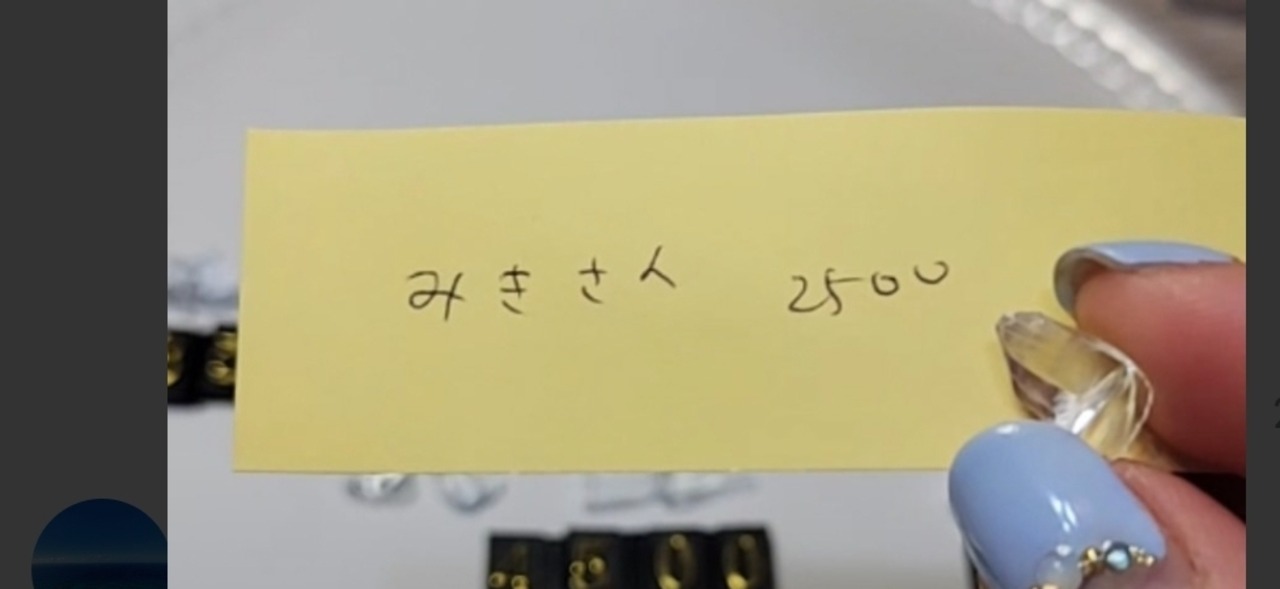 みきさん 2500